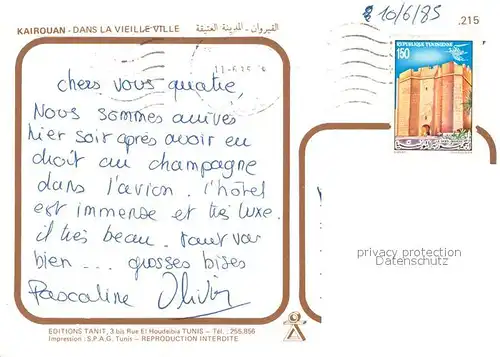 KAIROUAN - DANS LA VIEILLE VILLE القيروان - المدينة العتيقة
10/6/85
.215
REPUBLIQUE TUNISIENNE
150
chers vous quatre,
Nous sommes arrivés
hier soir après avoir eu
droit au champagne
dans l'avion. l'hôtel
est immense et très luxe.
il très beau. tout va
bien ... grosses bises
Pascaline Olivier
privacy protection
Datenschutz
EDITIONS TANIT, 3 bis Rue El Houdeibia TUNIS - Tél. : 255.856
Impression : S.P.A.G. Tunis - REPRODUCTION INTERDITE